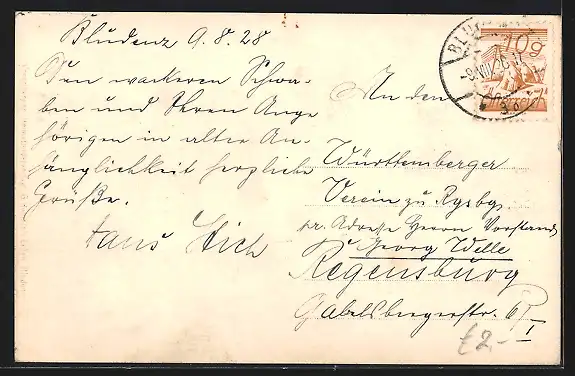 Bludenz 9.8.28
Den wackeren Schwa-
ben und Ihren Ange
hörigen in alter An-
hänglichkeit herzliche
Grüße.
Hans
An den
Württemberger
Verein zu Rgsbg.
pr. Adresse Herrn Vorstand
Georg Welle
Regensburg
Gabelsbergerstr.
I
£2.-
10g